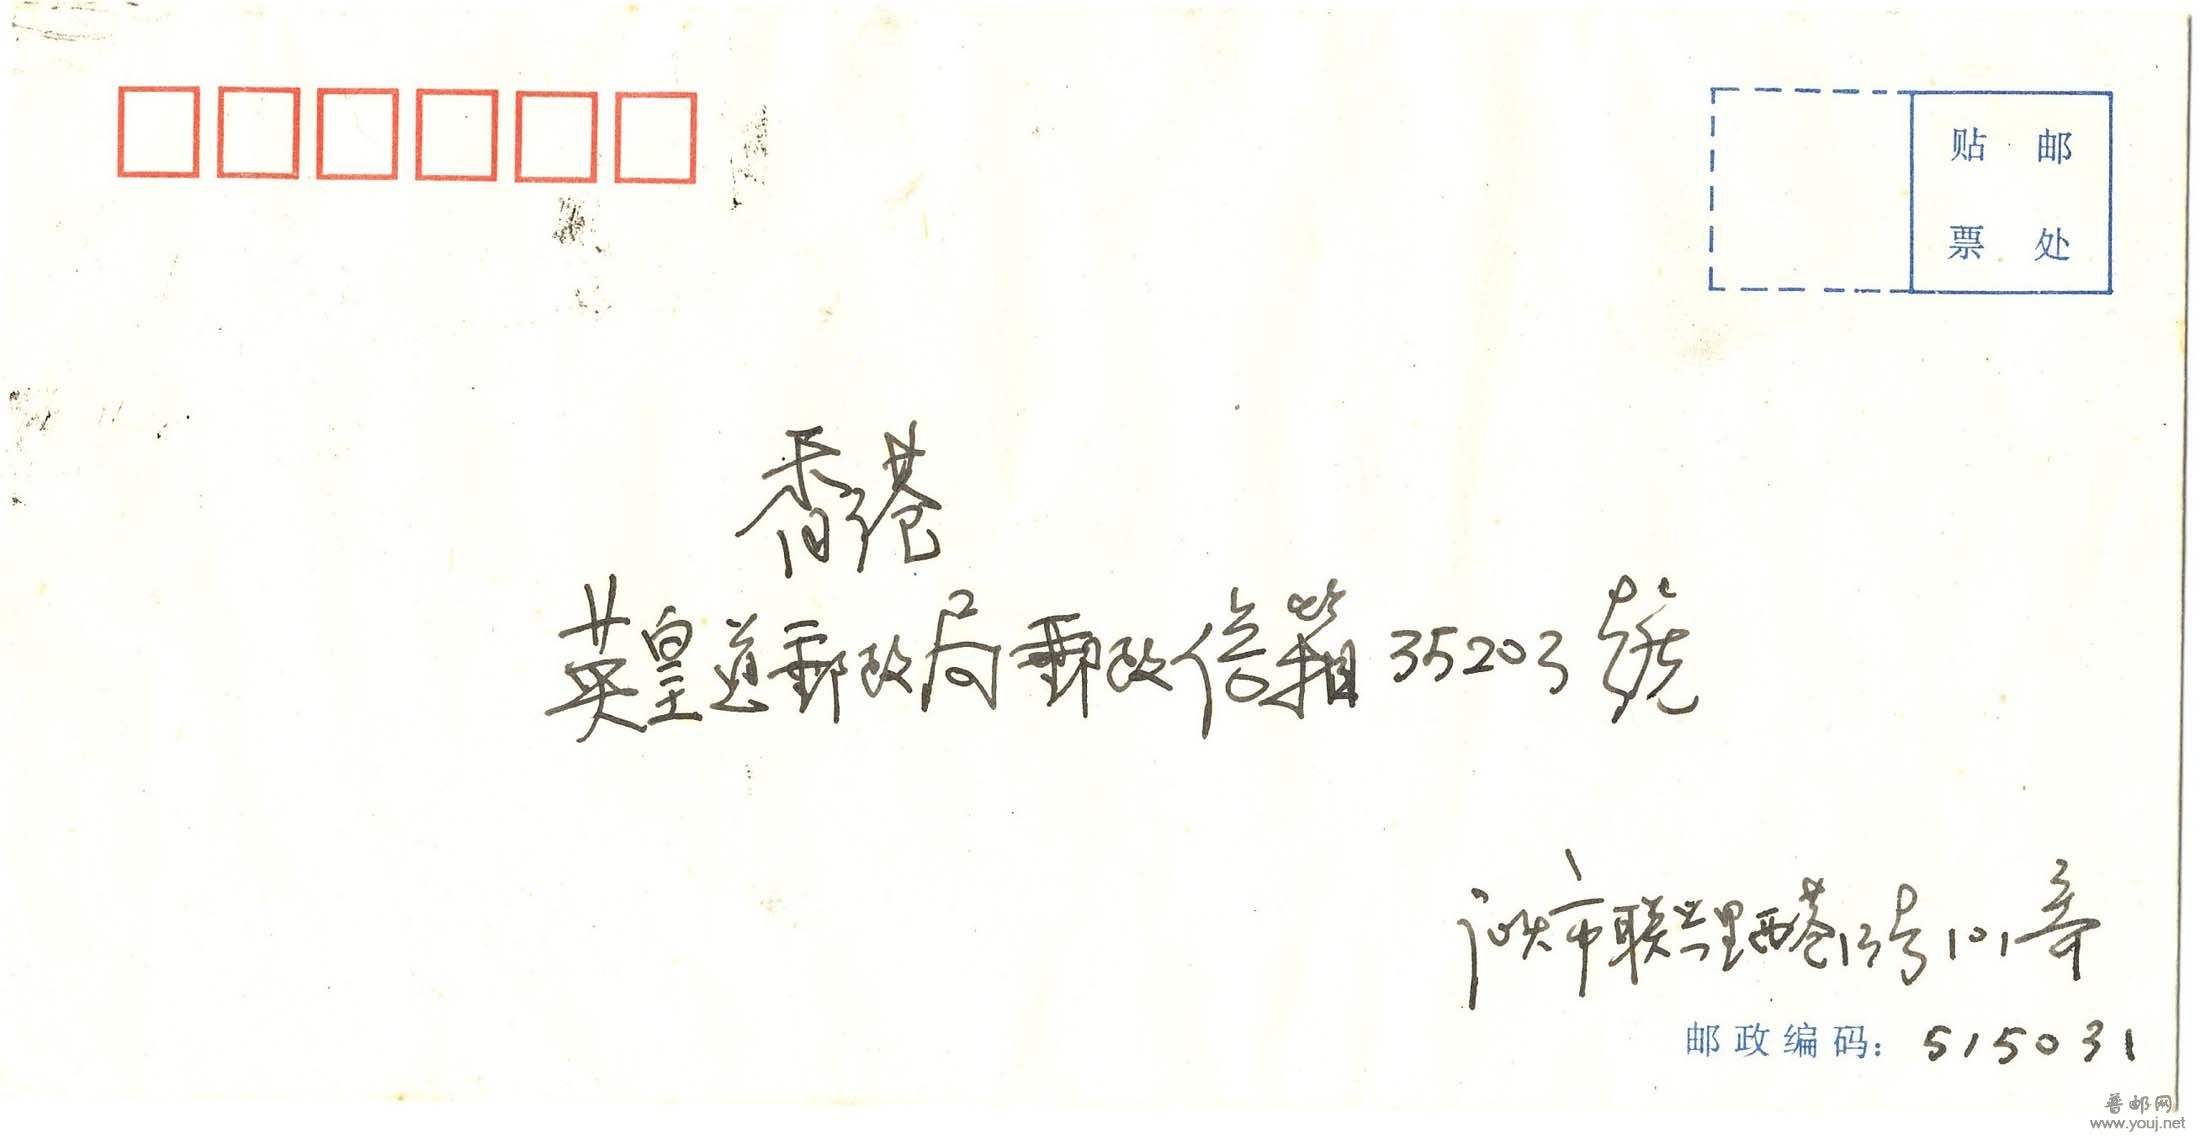 贴 邮
票 处
香港
英皇道郵政局郵政信箱35203號
汕头市联兴里西巷13号101
邮政编码: 515031
普邮网
www.youj.net